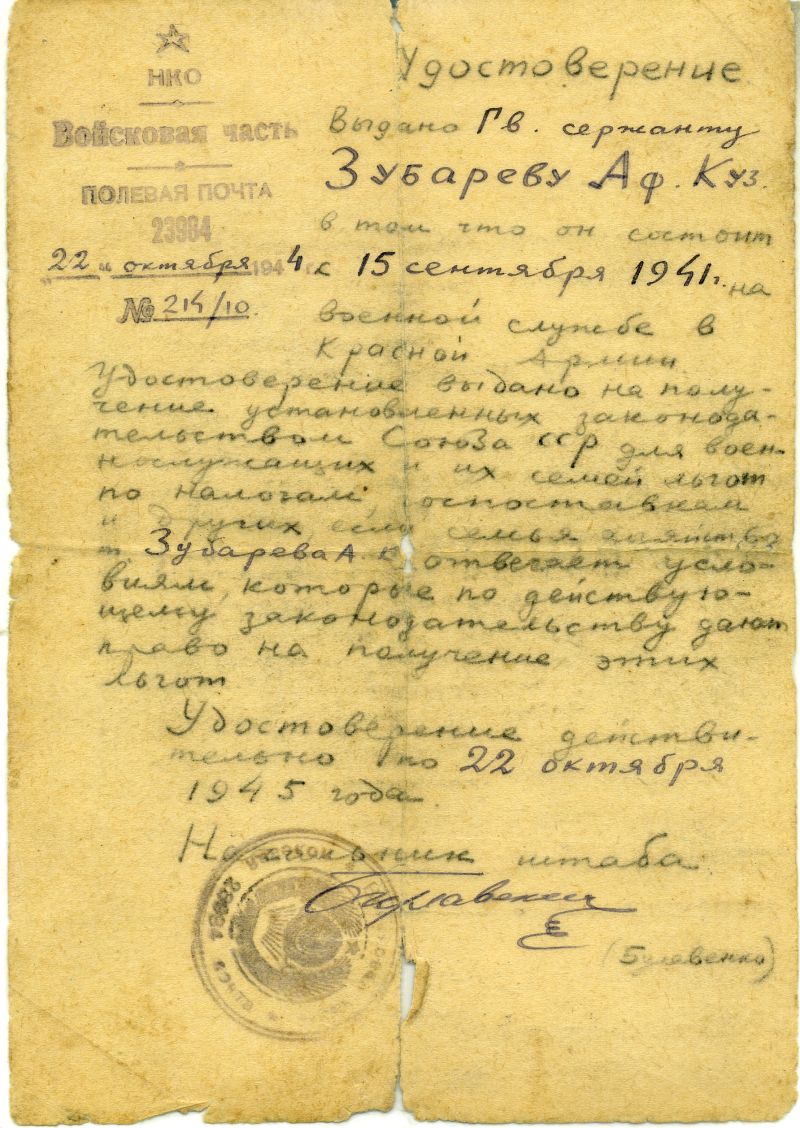 НКО
Войсковая часть
ПОЛЕВАЯ ПОЧТА
23984
"22" октября 1944 г.
№ 214/10.
Удостоверение
Выдано Гв. сержанту
Зубареву Аф. Куз.
в том что он состоит
с 15 сентября 1941 г. на
военной службе в
Красной Армии
Удостоверение выдано на полу-
чение установленных законода-
тельством Союза ССР для воен-
нослужащих и их семей льгот
по налогам госпоставкам
и других если семья
т. Зубарева А. К. отвечает усло-
виям, которые по действую-
щему законодательству дают
право на получение этих
льгот
Удостоверение действи-
тельно по 22 октября
1945 года.
Начальник штаба
(Булавенко)
ПОЛЕВАЯ ПОЧТА 23984